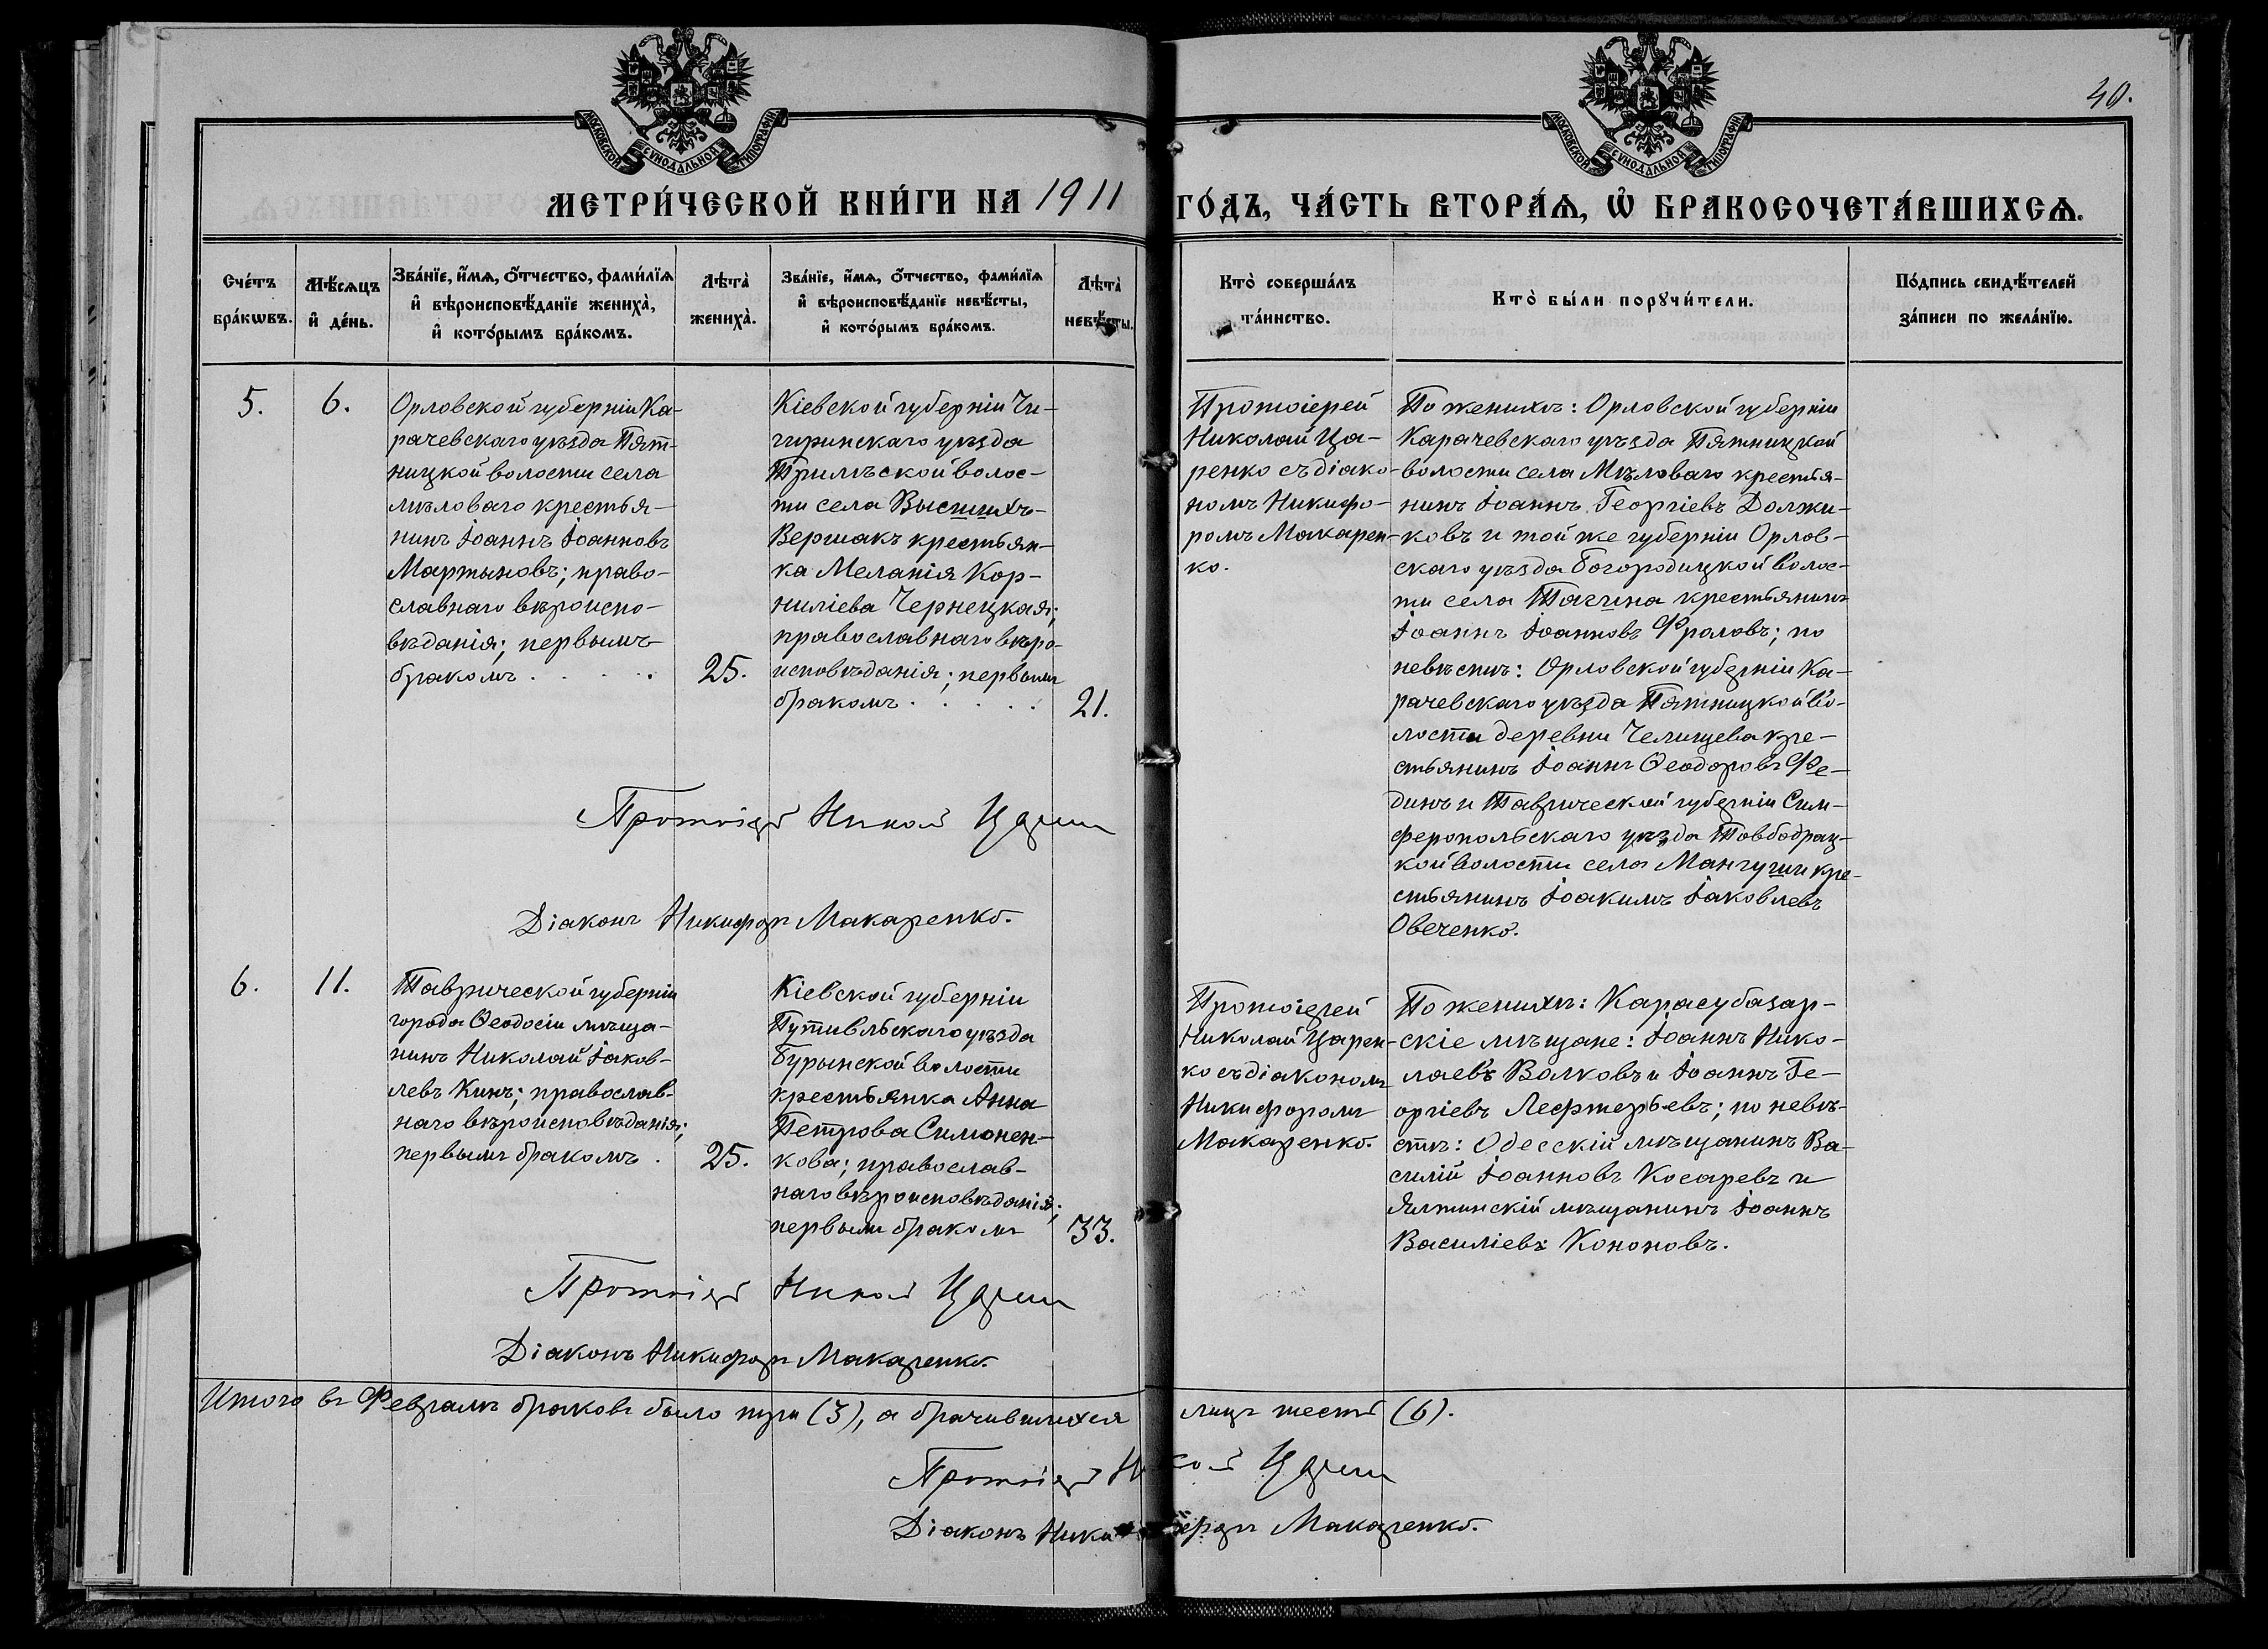 40.
МОСКОВСКОЙ СѴНОДАЛЬНОЙ ТИПОГРАФІИ
МОСКОВСКОЙ СѴНОДАЛЬНОЙ ТИПОГРАФІИ
МЕТРИ́ЧЕСКОЙ КНИ́ГИ НА 1911 ГО́ДЪ, ЧА́СТЬ ВТОРА́Ѧ, Ѡ҆ БРАКОСОЧЕТА́ВШИХСѦ.
Сче́тъ
бра́кѡвъ.
Мѣ́сѧцъ
и҆ де́нь.
Зва́нїе, и҆́мѧ, ѻ҆́тчество, фами́лїѧ
и҆ вѣроисповѣ́данїе жениха̀,
и҆ кото́рымъ бра́комъ.
Лѣта̀
жениха̀.
Зва́нїе, и҆́мѧ, ѻ҆́тчество, фами́лїѧ
и҆ вѣроисповѣ́данїе невѣ́сты,
и҆ кото́рымъ бра́комъ.
Лѣта̀
невѣ́сты.
Кто̀ соверша́лъ
та́инство.
Кто̀ бы́ли порꙋчи́тели.
По́дпись свидѣ́телей
за́писи по жела́нїю.
5.
6.
Орловской губерніи Ка-
рачевскаго уѣзда Пят-
ницкой волости села
Мѣловаго крестья-
нинъ Іоаннъ Іоанновъ
Мартыновъ; право-
славнаго вѣроиспо-
вѣданія; первымъ
бракомъ . . . .
25.
Кіевской губерніи Чи-
гиринскаго уѣзда
Трилѣской волос-
ти села Высшихъ-
Вершакъ крестьян-
ка Меланія Кор-
ниліева Чернецкая;
православнаго вѣро-
исповѣданія; первымъ
бракомъ . . . . .
21.
Протоіерей
Николай Ца-
ренко съ діако-
номъ Никифо-
ромъ Макарен-
ко.
По женихѣ: Орловской губерніи
Карачевскаго уѣзда Пятницкой
волости села Мѣловаго крестья-
нинъ Іоаннъ Георгіевъ Должи-
ковъ и той же губерніи Орлов-
скаго уѣзда Богородицкой волос-
ти села Тагина крестьянинъ
Іоаннъ Іоанновъ Фроловъ; по
невѣстѣ: Орловской губерніи Ка-
рачевскаго уѣзда Пятницкой во-
лости деревни Челищева кре-
стьянинъ Іоаннъ Ѳеодоровъ Фе-
динъ и Таврической губерніи Сим-
феропольскаго уѣзда
кой волости села Мангуши кре-
стьянинъ Іоакимъ Іаковлевъ
Овеченко.
Протоіерей Николай Царенко
Діаконъ Никифоръ Макаренко.
6.
11.
Таврической губерніи
города Ѳеодосіи мѣща-
нинъ Николай Іаков-
левъ Кинъ; православ-
наго вѣроисповѣданія;
первымъ бракомъ .
25.
Кіевской губерніи
Путивльскаго уѣзда
Бурынской волости
крестьянка Анна
Петрова Симонен-
кова; православ-
наго вѣроисповѣданія;
первымъ бракомъ
33.
Протоіерей
Николай Царен-
ко съ діакономъ
Никифоромъ
Макаренко.
По женихѣ: Карасубазар-
скіе мѣщане: Іоаннъ Нико-
лаевъ Волковъ и Іоаннъ Ге-
оргіевъ Лефтерьевъ; по невѣ-
стѣ: Одесскій мѣщанинъ Ва-
силій Іоанновъ Косаревъ и
Ялтинскій мѣщанинъ Іоаннъ
Василіевъ Кононовъ.
Протоіерей Николай Царенко
Діаконъ Никифоръ Макаренко.
Итого въ Февралѣ браковъ было три (3), а брачившихся лицъ шесть (6).
Протоіерей Николай Царенко
Діаконъ Никифоръ Макаренко.